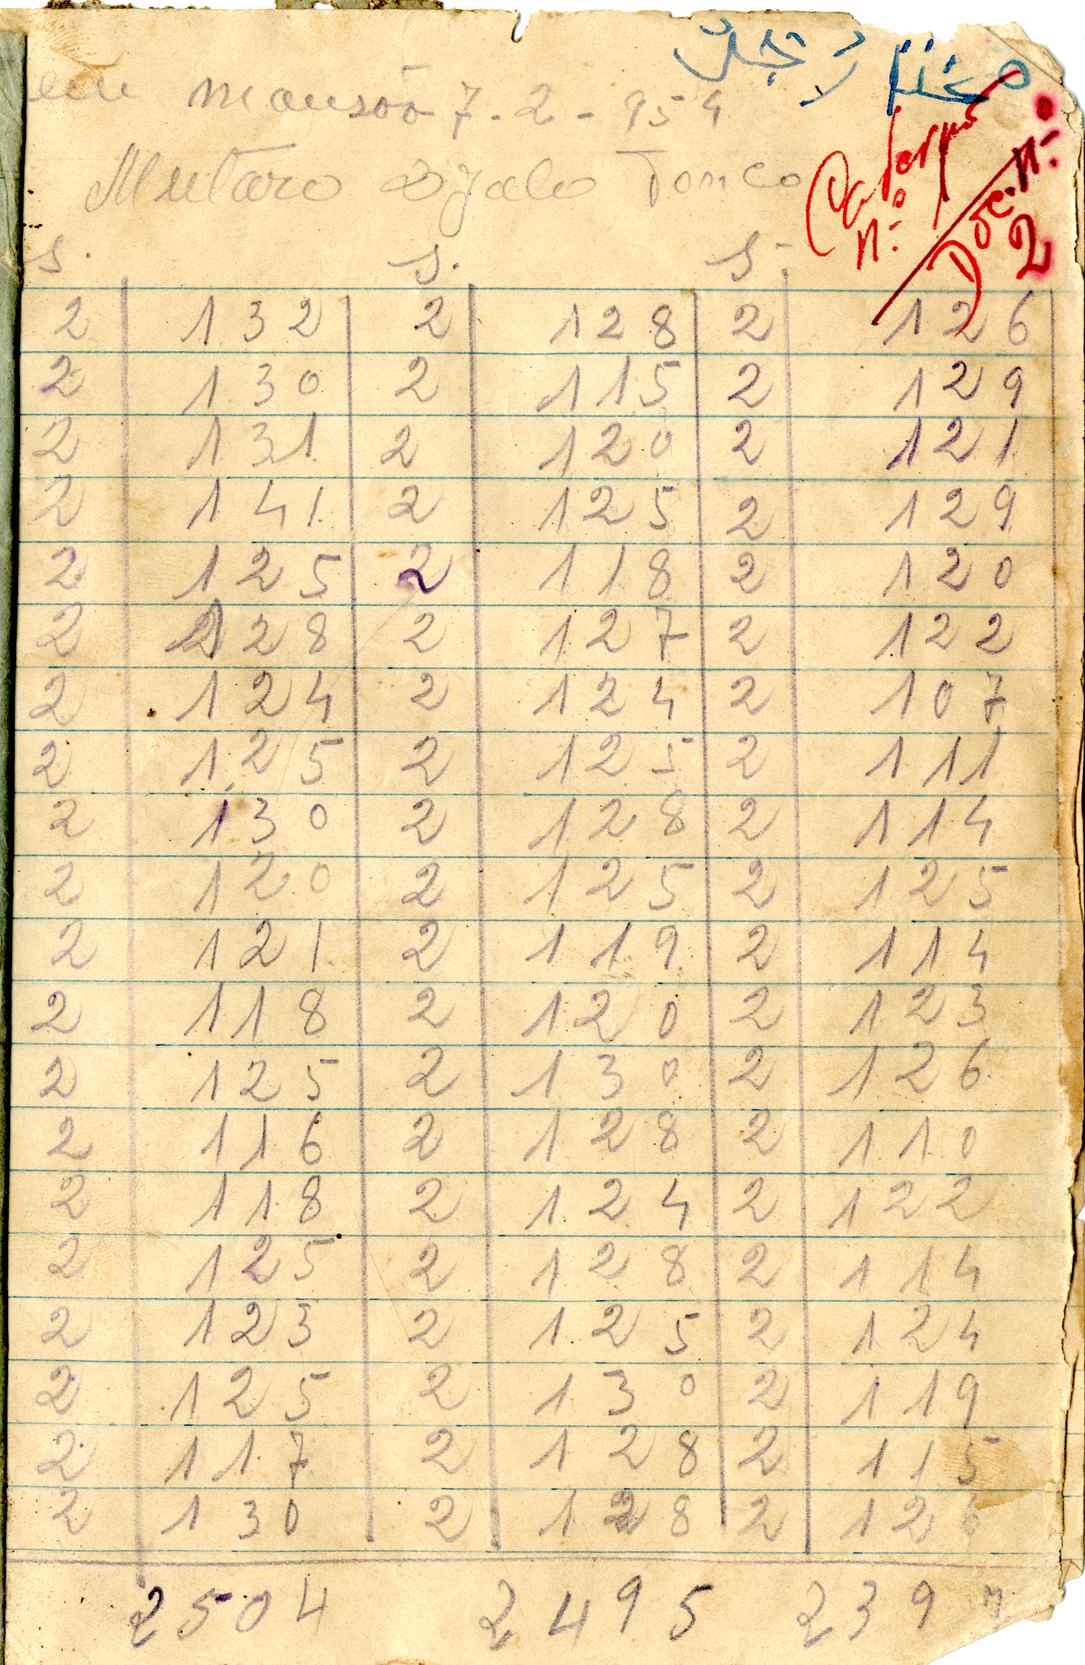 em Mansôo 7-2-954
Mutaro Djalo Tonco
Caderno Nº 1
Doc. Nº 2
S. S. S.
2 132 2 128 2 126
2 130 2 115 2 129
2 131 2 120 2 121
2 141 2 125 2 129
2 125 2 118 2 120
2 128 2 127 2 122
2 124 2 124 2 107
2 125 2 125 2 111
2 130 2 128 2 114
2 120 2 125 2 125
2 121 2 119 2 114
2 118 2 120 2 123
2 125 2 130 2 126
2 116 2 128 2 110
2 118 2 124 2 122
2 125 2 128 2 114
2 123 2 125 2 124
2 125 2 130 2 119
2 117 2 128 2 115
2 130 2 128 2 126
2504 2495 2397